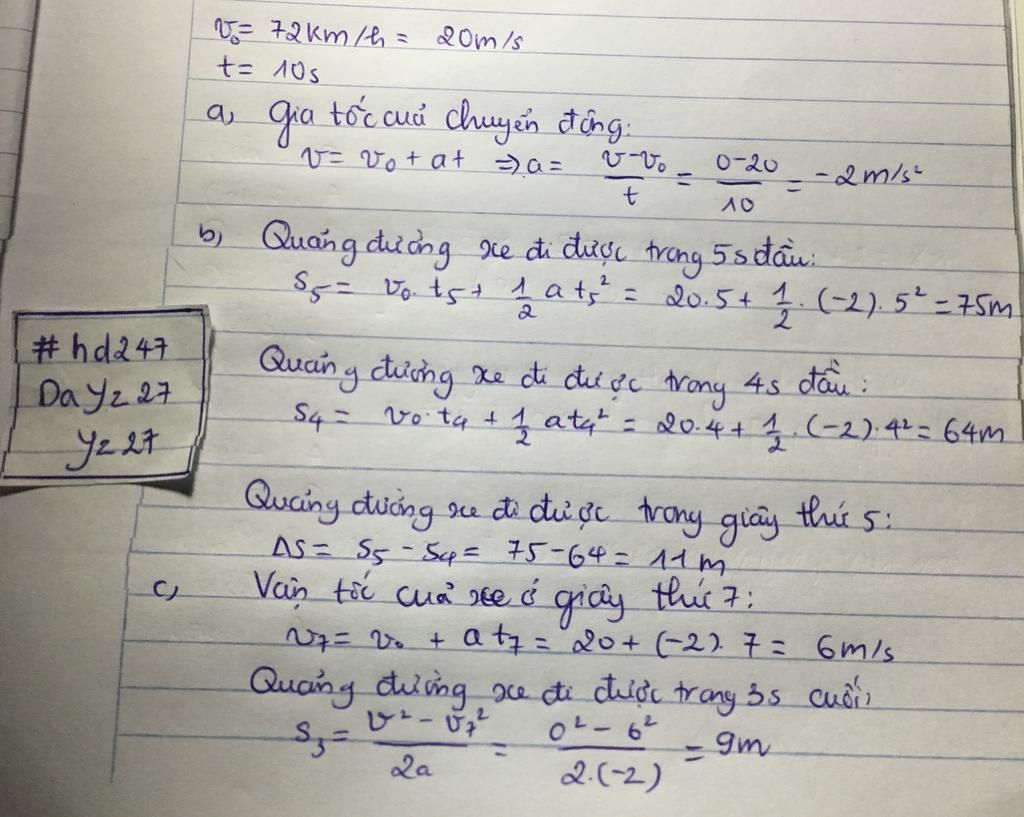 v₀ = 72km/h = 20m/s
t = 10s
a, Gia tốc của chuyển động:
v = v₀ + at ⇒ a = (v-v₀)/t = (0-20)/10 = -2m/s²
b, Quãng đường xe đi được trong 5s đầu:
S₅ = v₀.t₅ + 1/2 at₅² = 20.5 + 1/2.(-2).5² = 75m
Quãng đường xe đi được trong 4s đầu:
S₄ = v₀.t₄ + 1/2 at₄² = 20.4 + 1/2.(-2).4² = 64m
Quãng đường xe đi được trong giây thứ 5:
ΔS = S₅ - S₄ = 75-64 = 11m
c, Vận tốc của xe ở giây thứ 7:
v₇ = v₀ + at₇ = 20 + (-2).7 = 6m/s
Quãng đường xe đi được trong 3s cuối:
S₃ = (v² - v₇²)/2a = (0² - 6²)/2.(-2) = 9m
#hd247
DaYz27
Yz27